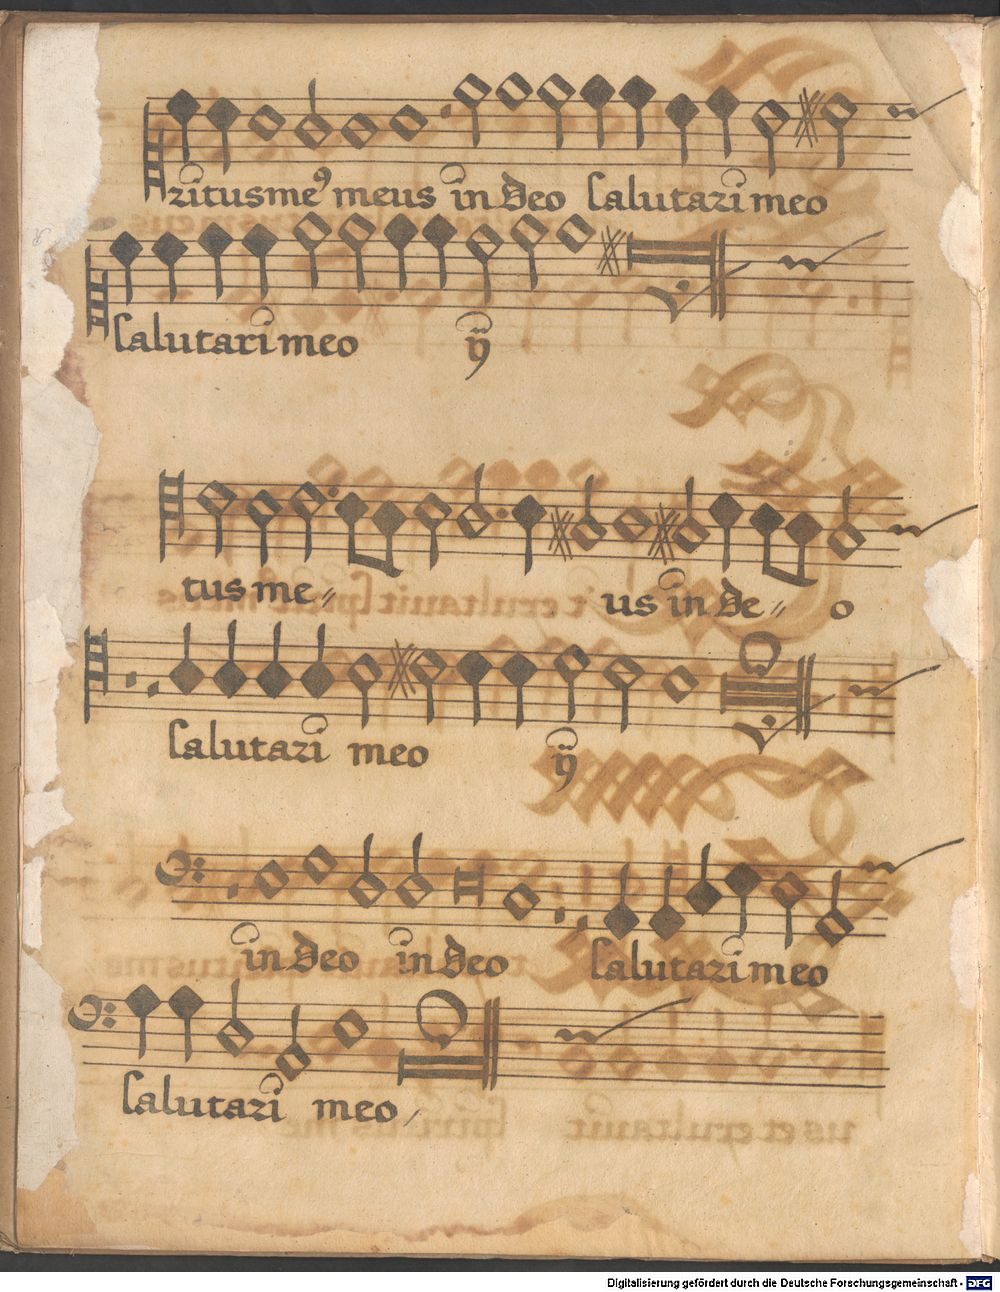 ritusme⁹ meus in deo salutari meo
salutari meo ij
tus me〃 us in de〃 o
salutari meo ij
in deo in deo salutari meo
salutari meo,
Digitalisierung gefördert durch die Deutsche Forschungsgemeinschaft - DFG